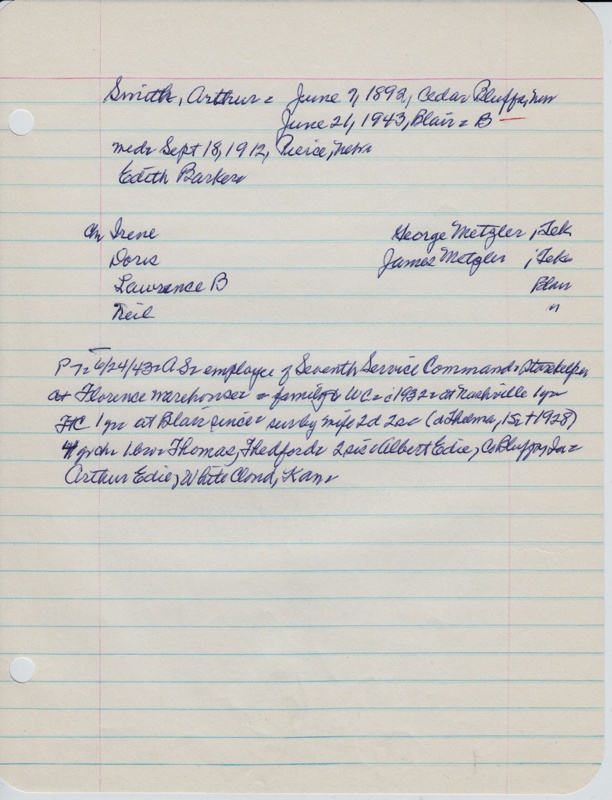 Smith, Arthur = June 7, 1892, Cedar Bluffs, Neb
June 21, 1943, Blair = B
md = Sept 18, 1912, Pierce, Nebr
Edith Barker
Ch Irene George Metzler, Tek
Doris James Metzler, Tek
Lawrence B Blair
Neil "
P-T = 6/24/43 = AS = employee of Seventh Service Command = storehelper
at Florence warehouse = family to WC = c1932 = at Nashville 1 yr
FtC 1 yr = at Blair since = sur by wife 2d 2s = (d Thelma, 1s + 1928)
4 grch 1 bro = Thomas, Thedford = 2 sis = Albert Edie, Co Bluffs, Ia =
Arthur Edie, White Cloud, Kan =